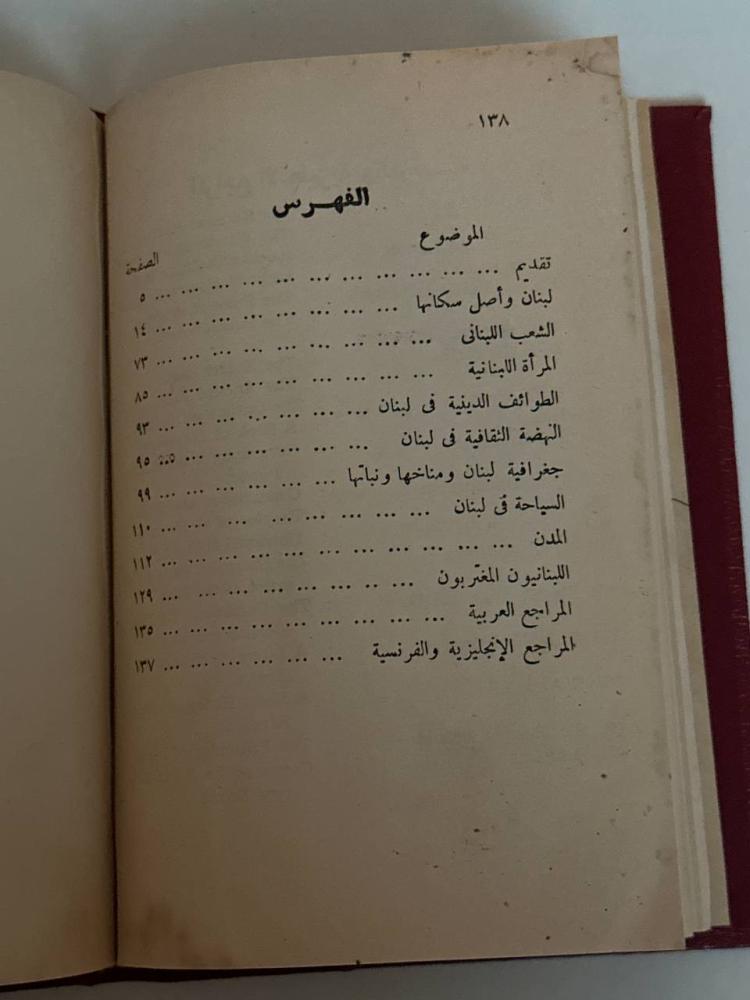 ١٣٨
الفهرس
الموضوع الصفحة
تقديم ... ... ... ... ... ... ... ... ... ... ... ... ٥
لبنان وأصل سكانها ... ... ... ... ... ... ... ... ... ١٤
الشعب اللبنانى ... ... ... ... ... ... ... ... ... ... ٧٣
المرأة اللبنانية ... ... ... ... ... ... ... ... ... ... ٨٥
الطوائف الدينية فى لبنان ... ... ... ... ... ... ... ... ٩٣
النهضة الثقافية فى لبنان ... ... ... ... ... ... ... ... ٩٥
جغرافية لبنان ومناخها ونباتها ... ... ... ... ... ... ... ٩٩
السياحة فى لبنان ... ... ... ... ... ... ... ... ... ... ١١٠
المدن ... ... ... ... ... ... ... ... ... ... ... ... ١١٢
اللبنانيون المغتربون ... ... ... ... ... ... ... ... ... ١٢٩
المراجع العربية ... ... ... ... ... ... ... ... ... ... ١٣٥
المراجع الإنجليزية والفرنسية ... ... ... ... ... ... ... ١٣٧